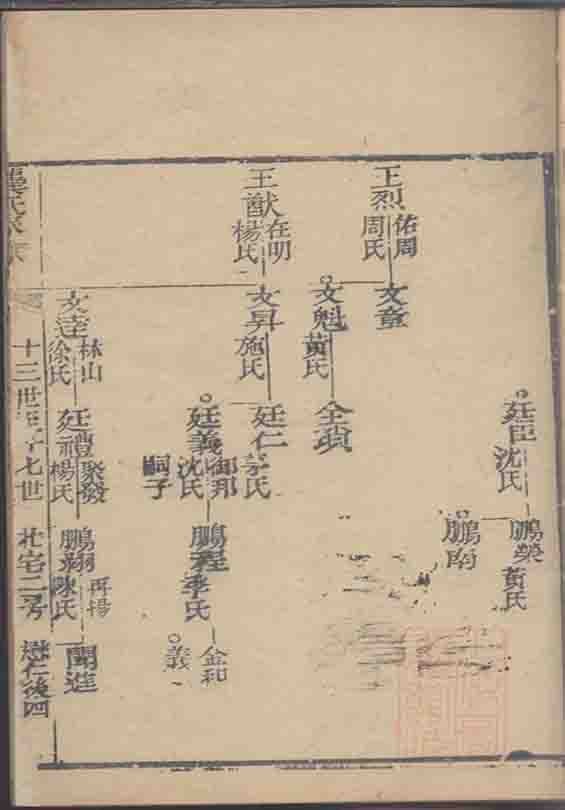 王烈
佑周
周氏
文章
文魁
黃氏
全瑣
廷臣
沈氏
鵬榮
黃氏
鵬南
王猷
在明
楊氏
文昇
施氏
廷仁
氏
廷義
御邦
沈氏
嗣子
鵬程
季氏
金和
義
文達
林山
徐氏
廷禮
聚發
楊氏
鵬翔
再揚
陳氏
開進
龔氏家
十三世至十七世
北宅二房
懋仁後四